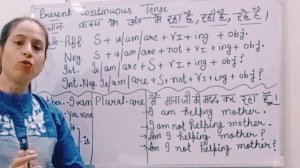 Present Continuous Tense
वाक्य के अंत में रहा है, रही है, रहे है।
Aff. S + is/am/are + VI + ing + obj.
Neg. S + is/am/are + not + VI + ing + obj.
Int. Is/am/are + S + VI + ing + obj.?
Int. Neg. Is/am/are + S + not + VI + ing + obj.?
I am Plural - are
मैं माता जी की मदद कर रहा हूँ
I am helping mother.
I am not helping mother.
Am I helping mother?
Am I not helping mother?